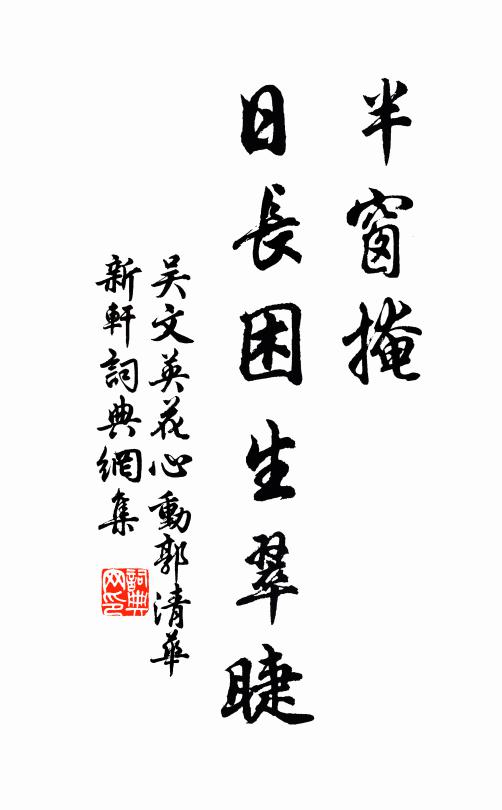 半窗掩
日長困生翠睫
吳文英花心動郭清華
新軒詞典網集
詞典
网印